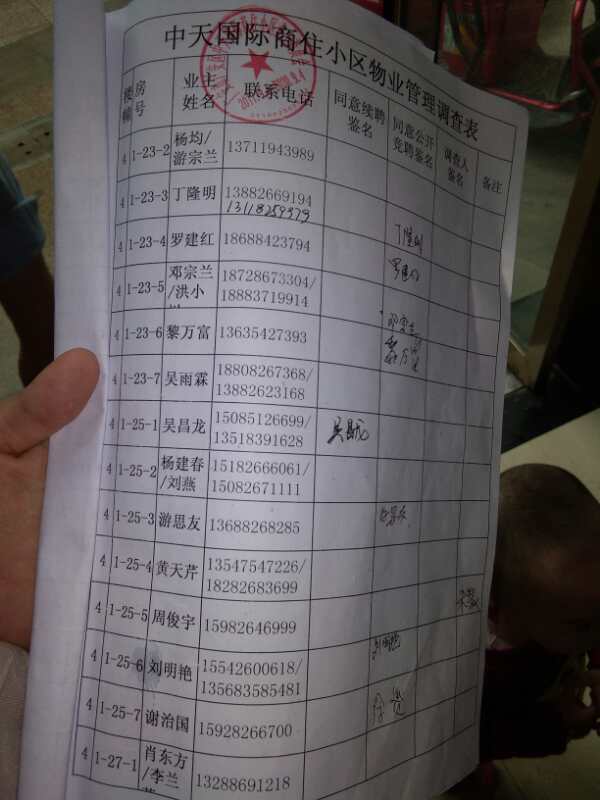 中天国际商住小区物业管理调查表
楼幢 房号 业主姓名 联系电话 同意续聘鉴名 同意公开竞聘鉴名 调查人鉴名 备注
4 1-23-2 杨均/游宗兰 13711943989
4 1-23-3 丁隆明 13882669194
13118259379
丁隆明
4 1-23-4 罗建红 18688423794
罗建红
4 1-23-5 邓宗兰/洪小 18728673304/18883719914
邓宗兰
4 1-23-6 黎万富 13635427393
黎万富
4 1-23-7 吴雨霖 18808267368/13882623168
4 1-25-1 吴昌龙 15085126699/13518391628
4 1-25-2 杨建春/刘燕 15182666061/15082671111
4 1-25-3 游思友 13688268285
4 1-25-4 黄天芹 13547547226/18282683699
4 1-25-5 周俊宇 15982646999
4 1-25-6 刘明艳 15542600618/135683585481
刘明艳
4 1-25-7 谢治国 15928266700
4 1-27-1 肖东方/李兰 13288691218